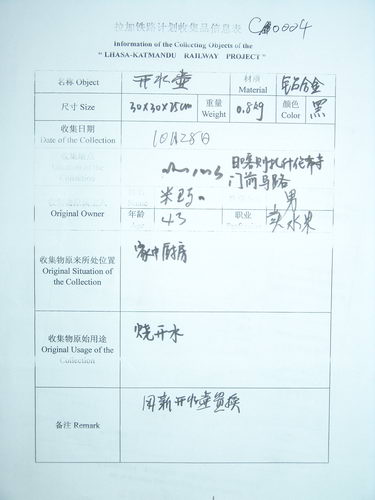 拉加铁路计划收集品信息表 C 0004
Information of the Collecting Objects of the
"LHASA-KATMANDU RAILWAY PROJECT"
名称 Object 开水壶 材质 Material 铝合金
尺寸 Size 30x30x35cm 重量 Weight 0.8kg 颜色 Color 黑
收集日期
Date of the Collection 10月28日
日喀则扎什伦布寺
门前马路
Original Owner 米玛 男
年龄 43 职业 卖水果
收集物原来所处位置
Original Situation of
the Collection
家中厨房
收集物原始用途
Original Usage of the
Collection
烧开水
备注 Remark 用新开水壶置换